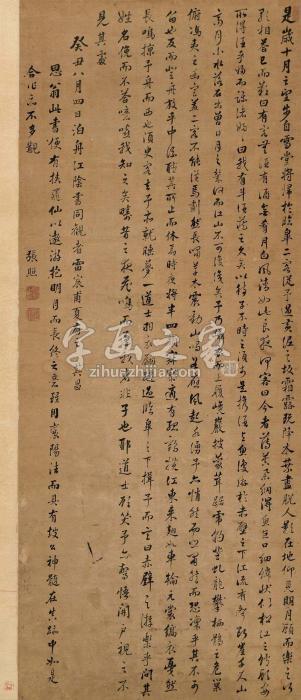 是歲十月之望步自雪堂將歸於臨皋二客從予過黃泥之坂霜露既降木葉盡脫人影在地仰見明月顧而樂之行
歌相答已而歎曰有客無酒有酒無肴月白風清如此良夜何客曰今者薄暮舉網得魚巨口細鱗狀似松江之鱸顧安
所得酒乎歸而謀諸婦婦曰我有斗酒藏之久矣以待子不時之須於是攜酒與魚復遊於赤壁之下江流有聲斷岸千尺山
高月小水落石出曾日月之幾何而江山不可復識矣予乃攝衣而上履巉巖披蒙茸踞虎豹登虬龍攀栖鶻之危巢
俯馮夷之幽宮蓋二客不能從焉劃然長嘯草木震動山鳴谷應風起水湧予亦悄然而悲肅然而恐凜乎其不可
留也反而登舟放乎中流聽其所止而休焉時夜將半四顧寂寥適有孤鶴橫江東來翅如車輪元裳縞衣戛然
長鳴掠予舟而西也須臾客去予亦就睡夢一道士羽衣蹁躚過臨皋之下揖予而言曰赤壁之遊樂乎問其
姓名俛而不答嗚呼噫嘻我知之矣疇昔之夜飛鳴而過我者非子也耶道士顧笑予亦驚悟開戶視之不
見其處
癸丑八月四日泊舟江陰書同觀者雷宸甫夏 其昌
思翁此書便有挾飛仙以遨游抱明月而長終之意 用襄陽法而具有坡公神髓在真跡中如是
合作亦不多觀 張照
字画之家
zihuazhijia.com